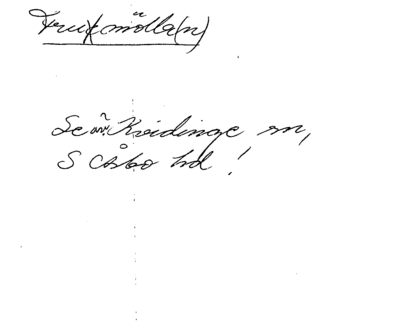 Truxmölla(n)
Se äv. Kvidinge sn,
S Åsbo hd!